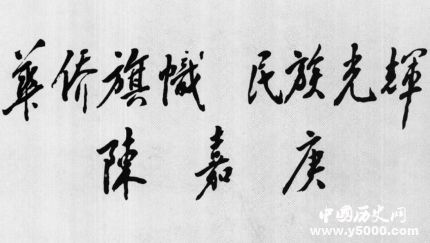 华侨旗幟 民族光輝
陳嘉庚
中国历史网
www.y5000.com